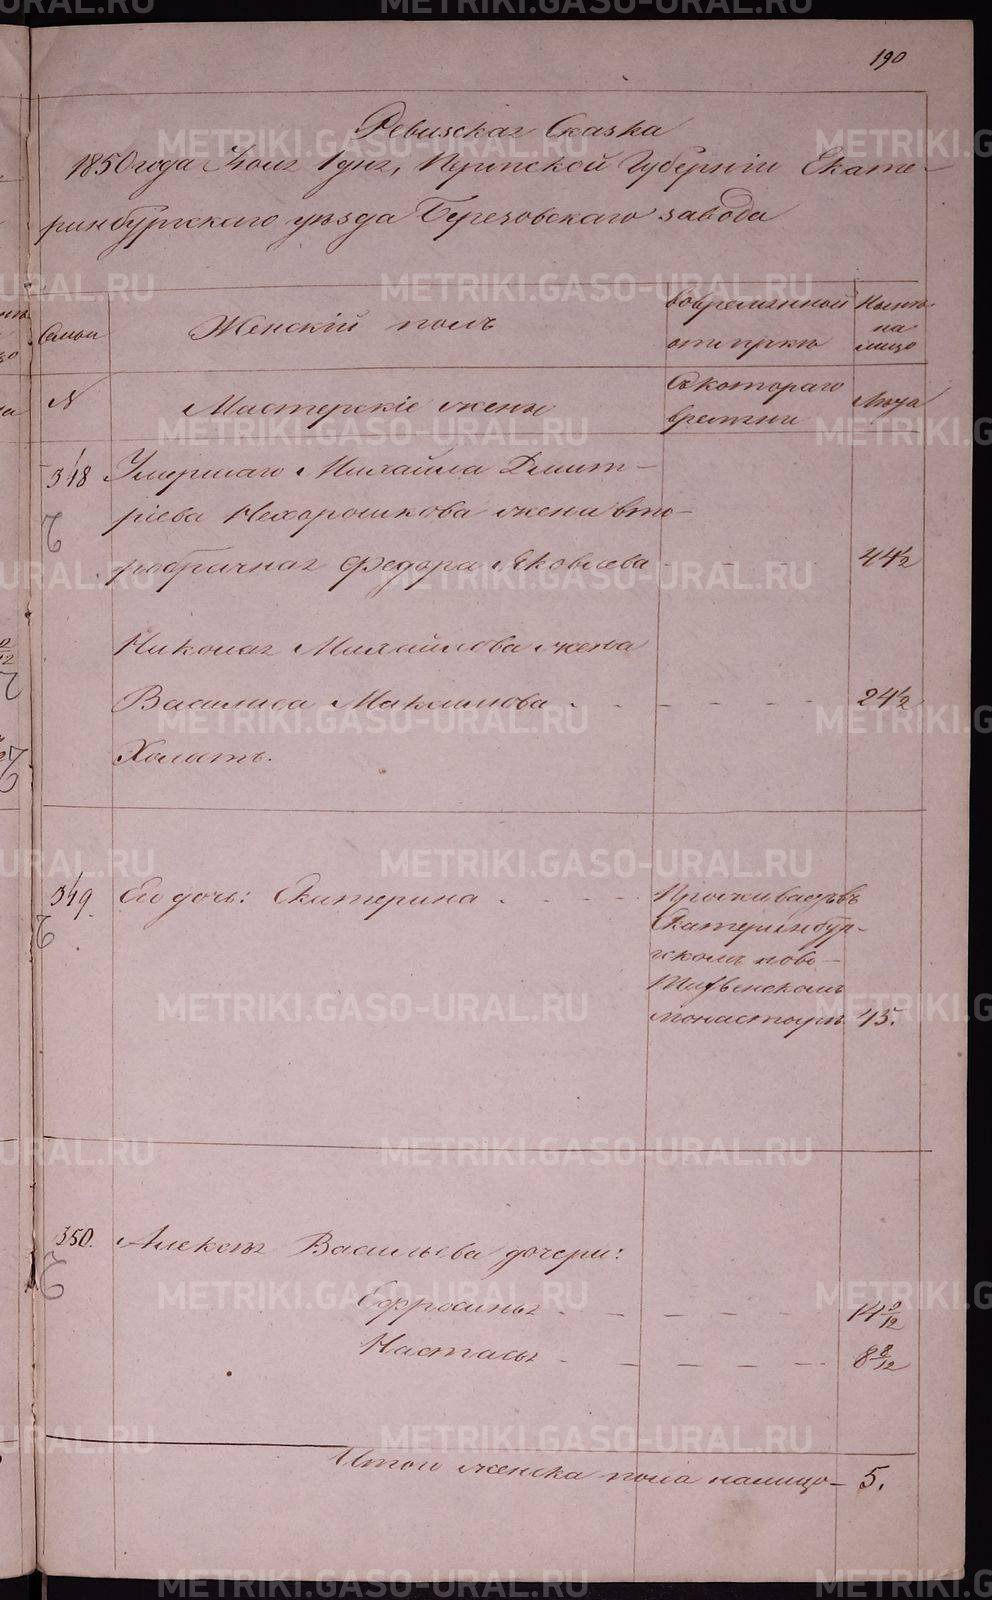 190
Ревизская Сказка
1850 года Июля 1 дня, Пермской Губернiи Екате-
ринбургскаго уѣзда Березовскаго завода
Семьи
Женскiй полъ
Вовременной
отлучкѣ
Нынѣ
на
лицо
N
Мастерскiе жены
Съ котораго
времени
Лѣта
348
Умершаго Михайла Дмит-
рiева Нехорошкова жена вто-
робрачная Федора Яковлева - - - 44 1/2
Николая Михайлова жена
Василиса Максимова - - - - 24 1/2
Холостъ.
349.
Его дочь: Екатерина - - - -
Проживаетъ въ
Екатеринбур-
гскомъ ново-
Тихвинскомъ
монастырѣ 45.
350.
Алексѣя Васильева дочери:
Ефросинья - - - - 14 9/12
Настасья - - - - 8 8/12
Итого женска пола налицо - 5.
METRIKI.GASO-URAL.RU